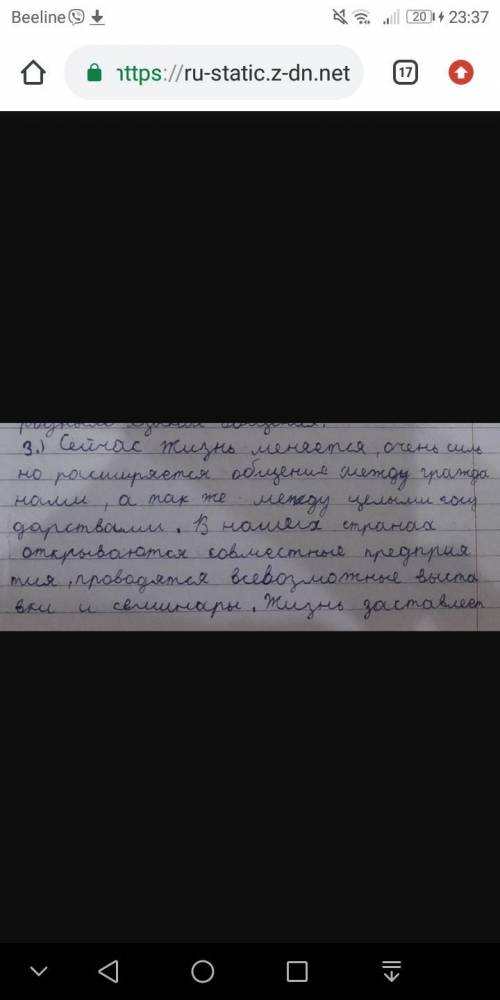 Beeline 20 23:37
https://ru-static.z-dn.net 17
3.) Сейчас жизнь меняется, очень силь
но расширяется общение между гражда
нами, а так же между целыми госу
дарствами. В наших странах
открываются совместные предприя
тия, проводятся всевозможные выста
вки и семинары. Жизнь заставляет